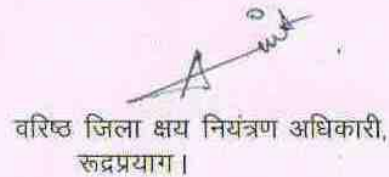 वरिष्ठ जिला क्षय नियंत्रण अधिकारी,
रूद्रप्रयाग।